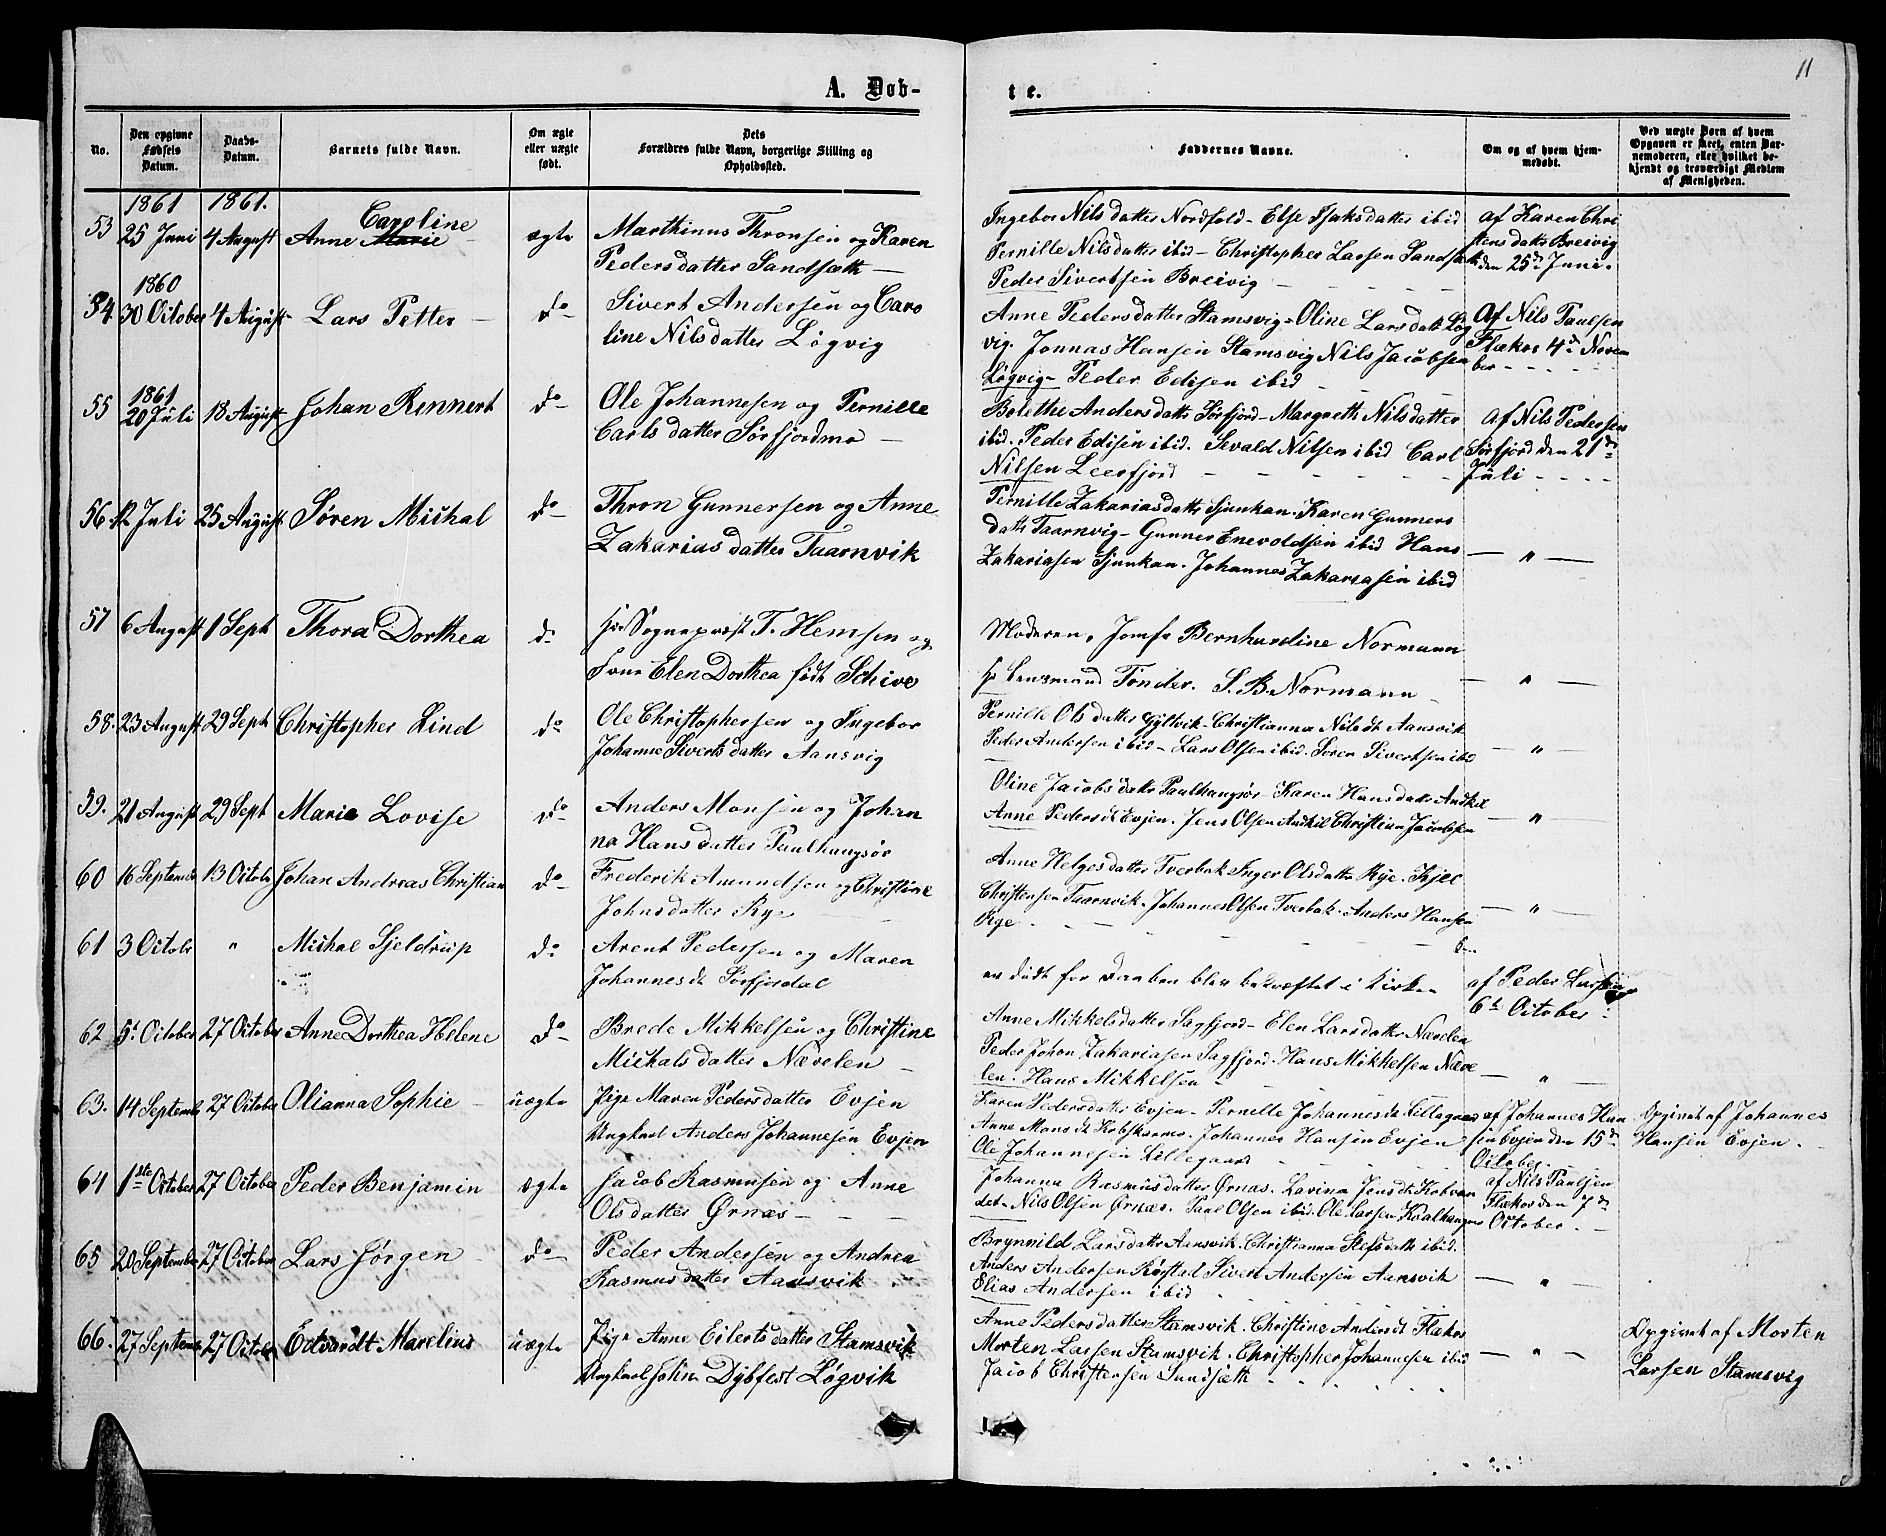 11
A. Døb-
te.
No.
Den opgivne Fødsels Datum.
Daabs-Datum.
Barnets fulde Navn.
Om ægte eller uægte født.
Dets Forældres fulde Navn, borgerlige Stilling og Opholdsted.
Faddernes Navne.
Om og af hvem hjemmedøbt.
Ved uægte Børn af hvem Opgaven er skeet, enten Barnemoderen, eller hvilket bekjendt og troværdigt Medlem af Menigheden.
1861 1861.
53 25 Juni 4 August Anne Marie Caroline ægte Marthinus Thronsen og Karen
Pedersdatter Sandsæth —
Ingebor Nilsdatter Nordfold - Else Isaksdatter ibid
Pernille Nilsdatter ibid - Christopher Larsen Sandsæth
Peder Sivertsen Breivig
af Karen Chri
stensdatter Breivig
den 25de Juni.
1860
54 30 October 4 August Lars Petter — do Sivert Andersen og Caro
line Nilsdatter Løgvig
Anne Pedersdatter Stamsvig - Oline Larsdatt Løg
vig. Jonnas Hansen Stamsvig Nils Jacobsen
Løgvig - Peder Edisen ibid
Af Nils Paulsen
Flækos 4de Novem
ber
1861
55 20 Juli 18 August Johan Rennert do Ole Johannesen og Pernille
Carlsdatter Sørfjordmo —
Bolethe Andersdatter Sørfjord - Margreth Nilsdatter
ibid. Peder Edisen ibid. Sevald Nilsen ibid Carl
Nilsen Leerfjord
Af Nils Pedersen
Sørfjord den 21de
Juli
56 12 Juli 25 August Søren Michal do Thron Gunnersen og Anne
Zakariasdatter Taarnvik
Pernille Zakariasdatter Sjunkan. Karen Gunners
datter Taarnvig - Gunner Enevoldsen ibid Hans
Zakariasen Sjunkan. Johannes Zakariasen ibid
— " —
57 6 August 1 Sept Thora Dorthea do Hr Sognepræst T. Hemsen og
Frue Elen Dorthea født Schive
Moderen, Jomfr Bernhardine Normann
Hr Lensmand Tønder. S. B. Normann
— " —
58. 23 August 29 Sept Christopher Lind do Ole Christophersen og Ingebor
Johanne Sivertsdatter Aansvig
Pernille Olsdatter Gyltvik - Christianna Nilsdt Aansvik
Peder Andersen ibid - Lars Olsen ibid. Søren Sivertsen ibid
— " —
59. 21 August 29 Sept Marie Lovise do Anders Monsen og Johan
na Hansdatter Paulhaugsør
Oline Jacobsdatter Paulhaugsør - Karen Hansdatter Andkil
Anne Pedersdt Evjen. Jens Olsen Andkil Christian Jacobsen
— " —
60 16 September 13 Octobr Johan Andreas Christian do Frederik Amundsen og Christine
Johnsdatter Rye
Anne Helgesdatter Tverbak Inger Olsdatter Rye. Kjel
Christensen Taarnvik. Johannes Olsen Tverbak. Anders Hansen
Rye.
— " —
61 3 Octobr " Michal Sjeldrup do Arent Pedersen og Maren
Johannesdt Sørfjordal
er død før Daaben blev bekræftet i Kirken
af Peder Larsen
6te October
62 5t October 27 October Anne Dorthea Helene do Brede Mikkelsen og Christine
Michalsdatter Nævelen —
Anne Mikkelsdatter Sagfjord - Elen Larsdatter Nævelen
Peder Johan Zakariasen Sagfjord. Hans Mikkelsen Næve
len. Hans Mikkelsen
— " —
63. 14 Septemb 27 October Olianna Sophie — uægte Pige Maren Pedersdatter Evjen
Ungkarl Anders Johannesen Evjen
Karen Pedersdatter Evjen - Pernille Johannesdt Lillegaard
Anne Monsdt Kobskarmo. Johannes Hansen Evjen
Ole Johannesen Lillegaard
af Johannes Han
sen Evjen den 15de
October.
Opgivet af Johannes
Hansen Evjen.
64 1ste October 27 October Peder Benjamin ægte Jacob Rasmusen og Anne
Olsdatter Ørnæs
Johanna Rasmusdatter Ørnæs. Lavina Jensdt Kobvan
det - Nils Olsen Ørnæs. Paul Olsen ibid. Ole Larsen Kvalhaugnes
af Nils Paulsen
Flækos den 7de
October.
65 20 September 27 October Lars Jørgen do Peder Andersen og Andrea
Rasmusdatter Aansvik
Brynnild Larsdatter Aansvik. Christianna Stefsdatter ibid.
Anders Andersen Rørstad Sivert Andersen Aansvik
Elias Andersen ibid
— " —
66 27 Septemb 27 Octobr Edvardt Marelius uægte Pige Anne Eilertsdatter Stamsvik
Ungkarl John Dybfest Løgvik
Anne Pedersdatter Stamsvik. Christine Andersdt Flækos
Morten Larsen Stamsvik. Christopher Johannesen ibid
Jacob Christensen Sandsæth
— " —
Opgivet af Morten
Larsen Stamsvig